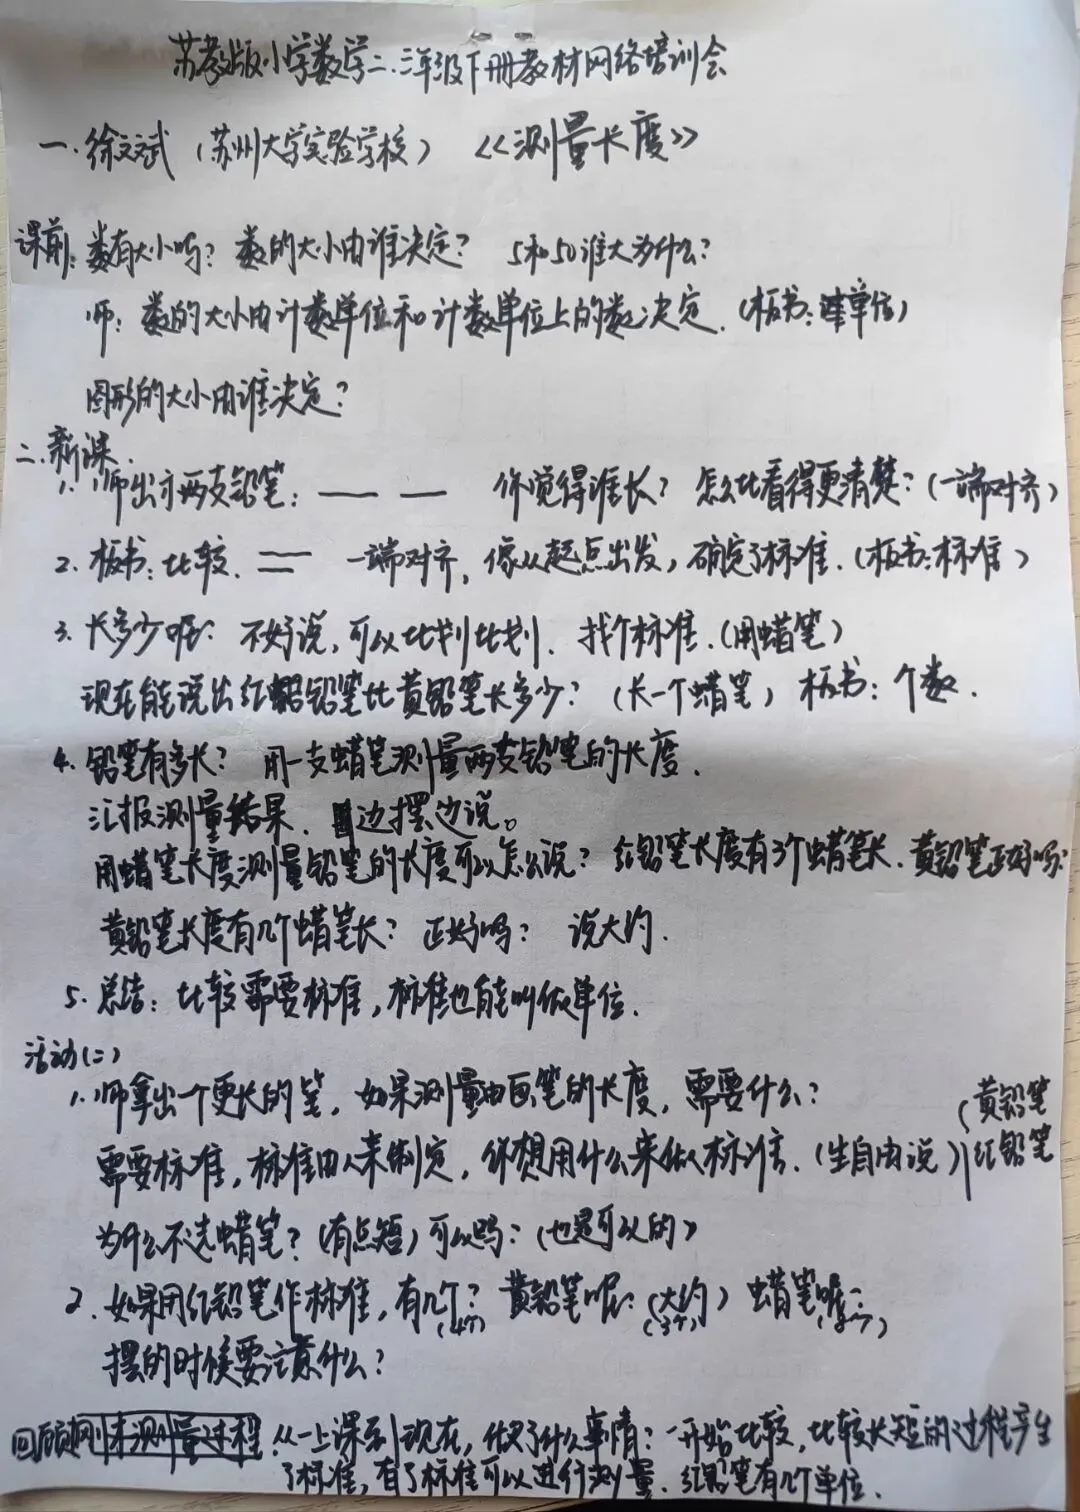 苏教版小学数学二.三年级下册教材网络培训会
一.徐文斌(苏州大学实验学校) 《测量长度》
课前:数有大小吗?数的大小由谁决定? 5和50谁大为什么?
师:数的大小由计数单位和计数单位上的数决定.(板书:单位)
图形的大小由谁决定?
二.新课.
1.师出示两支铅笔:— — 你觉得谁长?怎么比看得更清楚?(一端对齐)
2.板书:比较. 一端对齐,像从起点出发,确定了标准.(板书:标准)
3.长多少呢?不好说,可以比划比划.找个标准.(用蜡笔)
现在能说出红铅笔比黄铅笔长多少?(长一个蜡笔)板书:个数.
4.铅笔有多长?用一支蜡笔测量两支铅笔的长度.
汇报测量结果.边摆边说。
用蜡笔长度测量铅笔的长度可以怎么说?红铅笔长度有3个蜡笔长.黄铅笔正好吗?
黄铅笔长度有几个蜡笔长?正好吗?说大约.
5.总结:比较需要标准,标准也能叫做单位.
活动(二)
1.师拿出一个更长的笔,如果测量由画笔的长度,需要什么?
需要标准,标准由人来制定,你想用什么来做标准.(生自由说)
(黄铅笔
红铅笔
为什么不选蜡笔?(有点短)可以吗?(也是可以的)
2.如果用红铅笔作标准,有几个?黄铅笔呢?(大约)蜡笔呢?
(4个) (3个) (2个)
摆的时候要注意什么?
回顾刚才测量过程.从一上课到现在,做了什么事情?一开始比较,比较长短的过程产生
了标准,有了标准可以进行测量.红铅笔有几个单位.